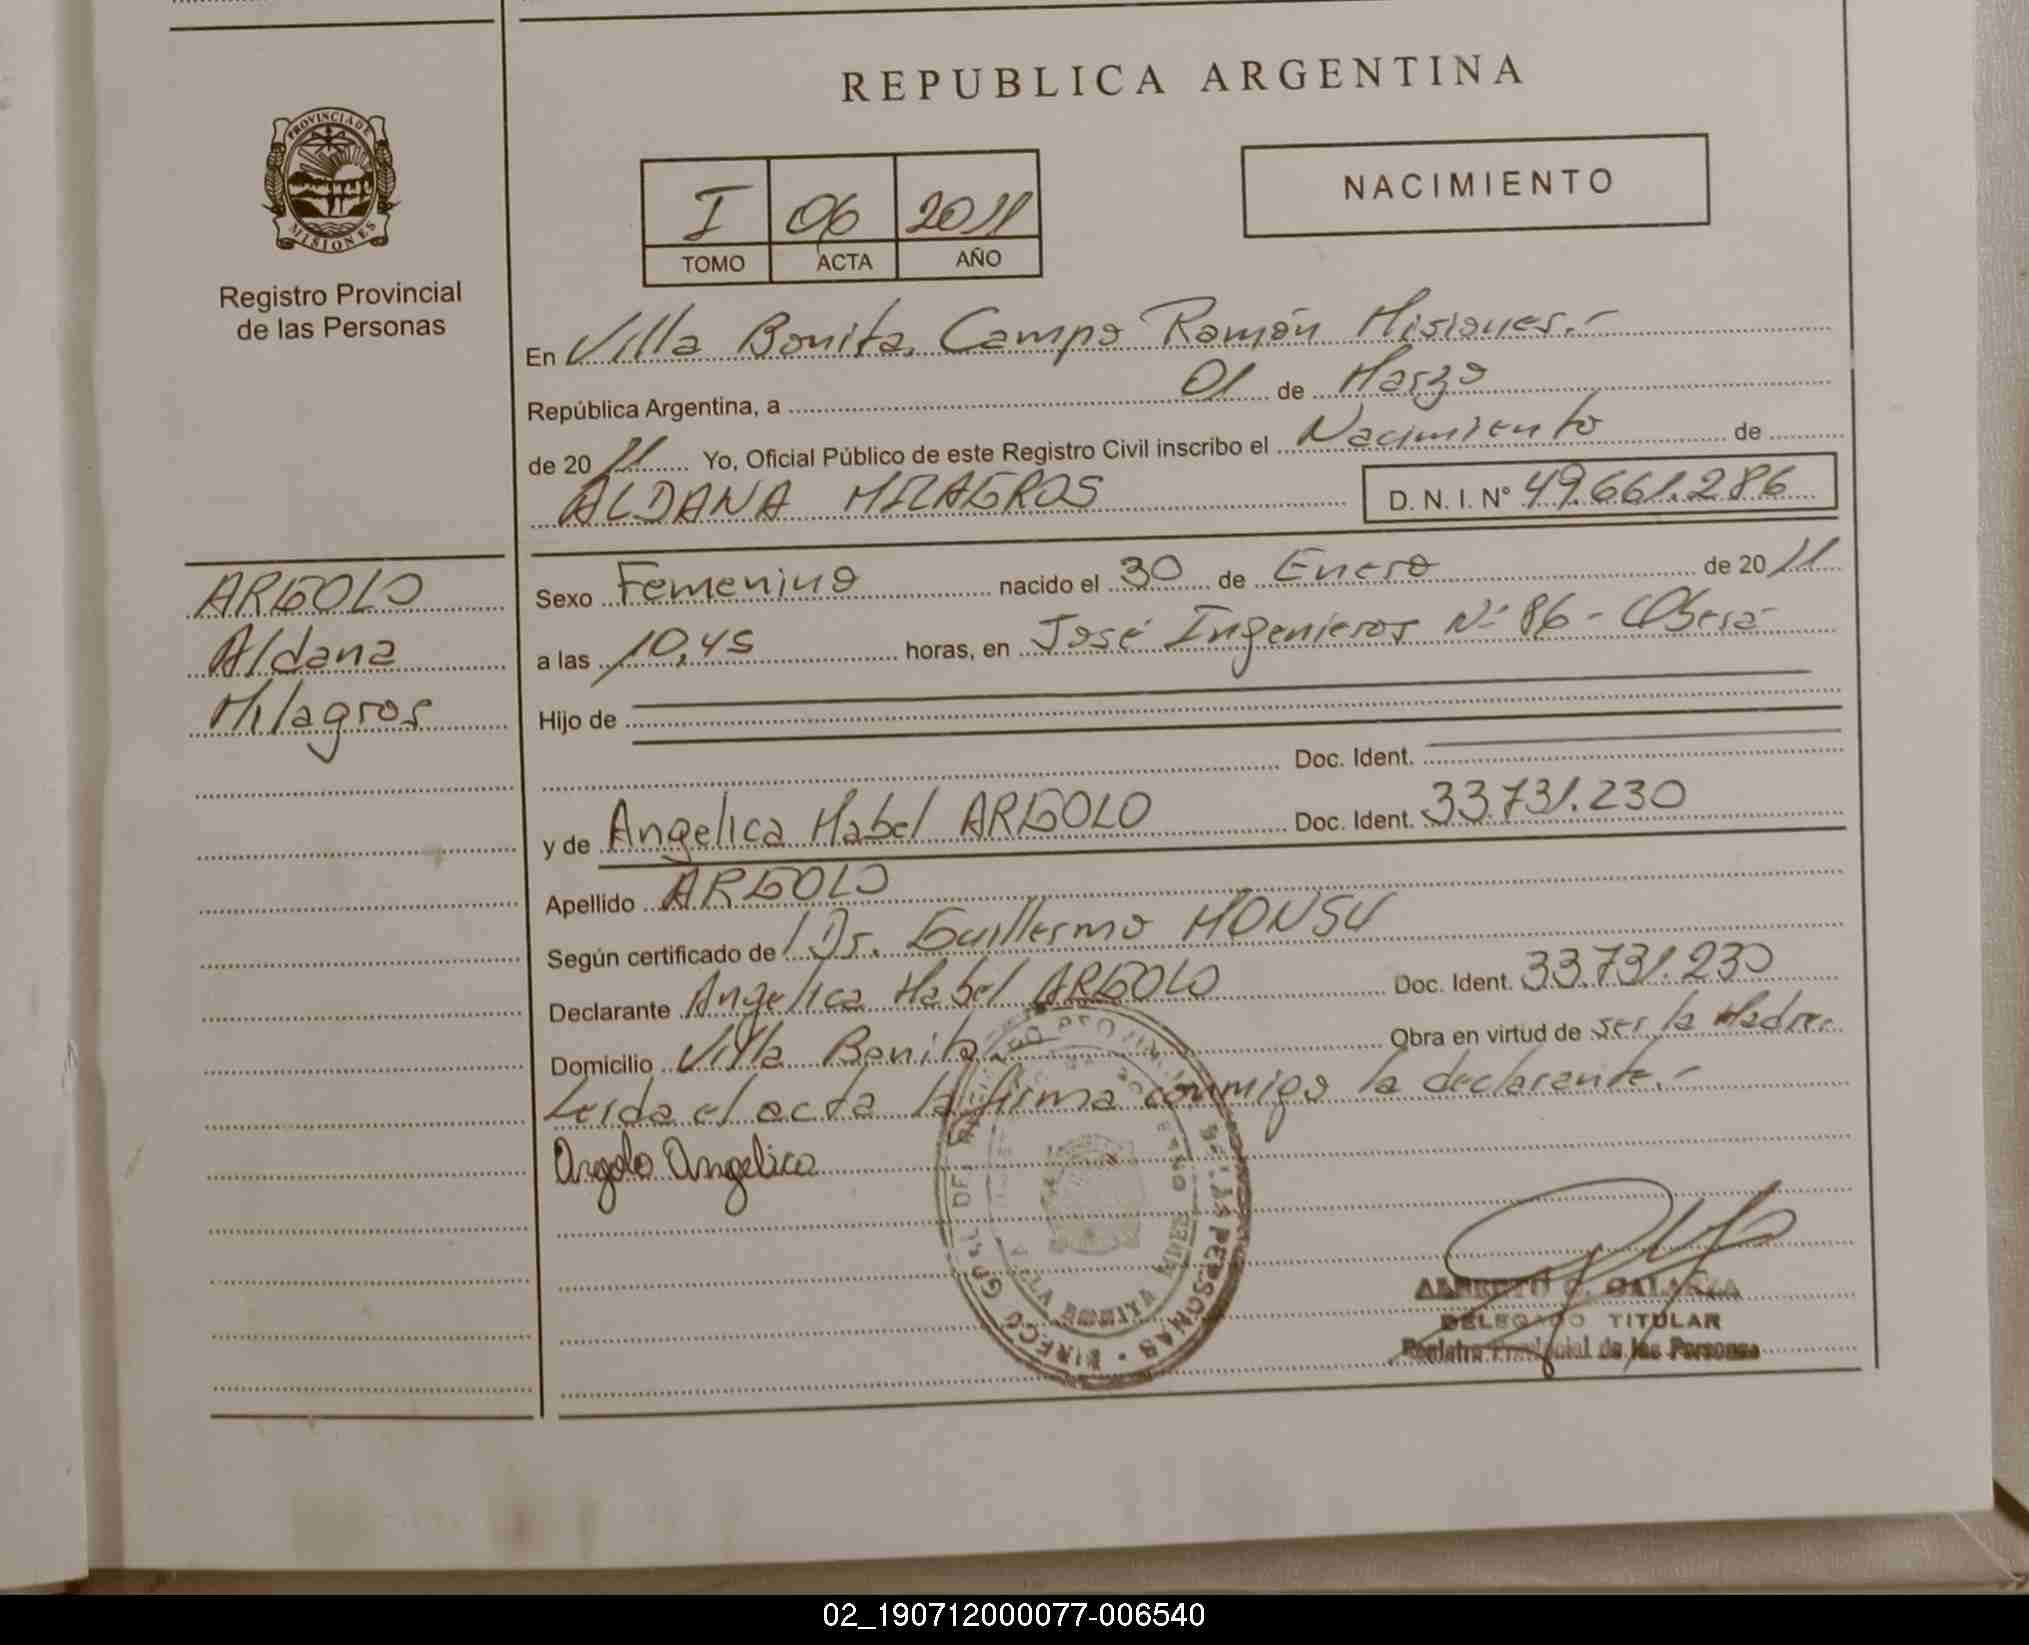 REPUBLICA ARGENTINA
PROVINCIA DE
MISIONES
Registro Provincial
de las Personas
NACIMIENTO
I 06 2011
TOMO ACTA AÑO
En Villa Bonita, Campo Ramón Misiones.-
República Argentina, a 01 de Marzo
de 2011 Yo, Oficial Público de este Registro Civil inscribo el Nacimiento de
ALDANA MILAGROS D. N. I. N° 49.661.286
ARGOLO
Aldana
Milagros
Sexo Femenino nacido el 30 de Enero de 2011
a las 10,45 horas, en José Ingenieros N° 86 - Oberá-
Hijo de
Doc. Ident.
y de Angelica Mabel ARGOLO Doc. Ident. 33.731.230
Apellido ARGOLO
Según certificado de Dr. Guillermo MONSU
Declarante Angelica Mabel ARGOLO Doc. Ident. 33.731.230
Domicilio Villa Bonita Obra en virtud de ser la Madre.-
Leida el acta la firma conmigo la declarante.-
Argolo Angelica
DELEGADO TITULAR
Registro Provincial de las Personas
02_190712000077-006540